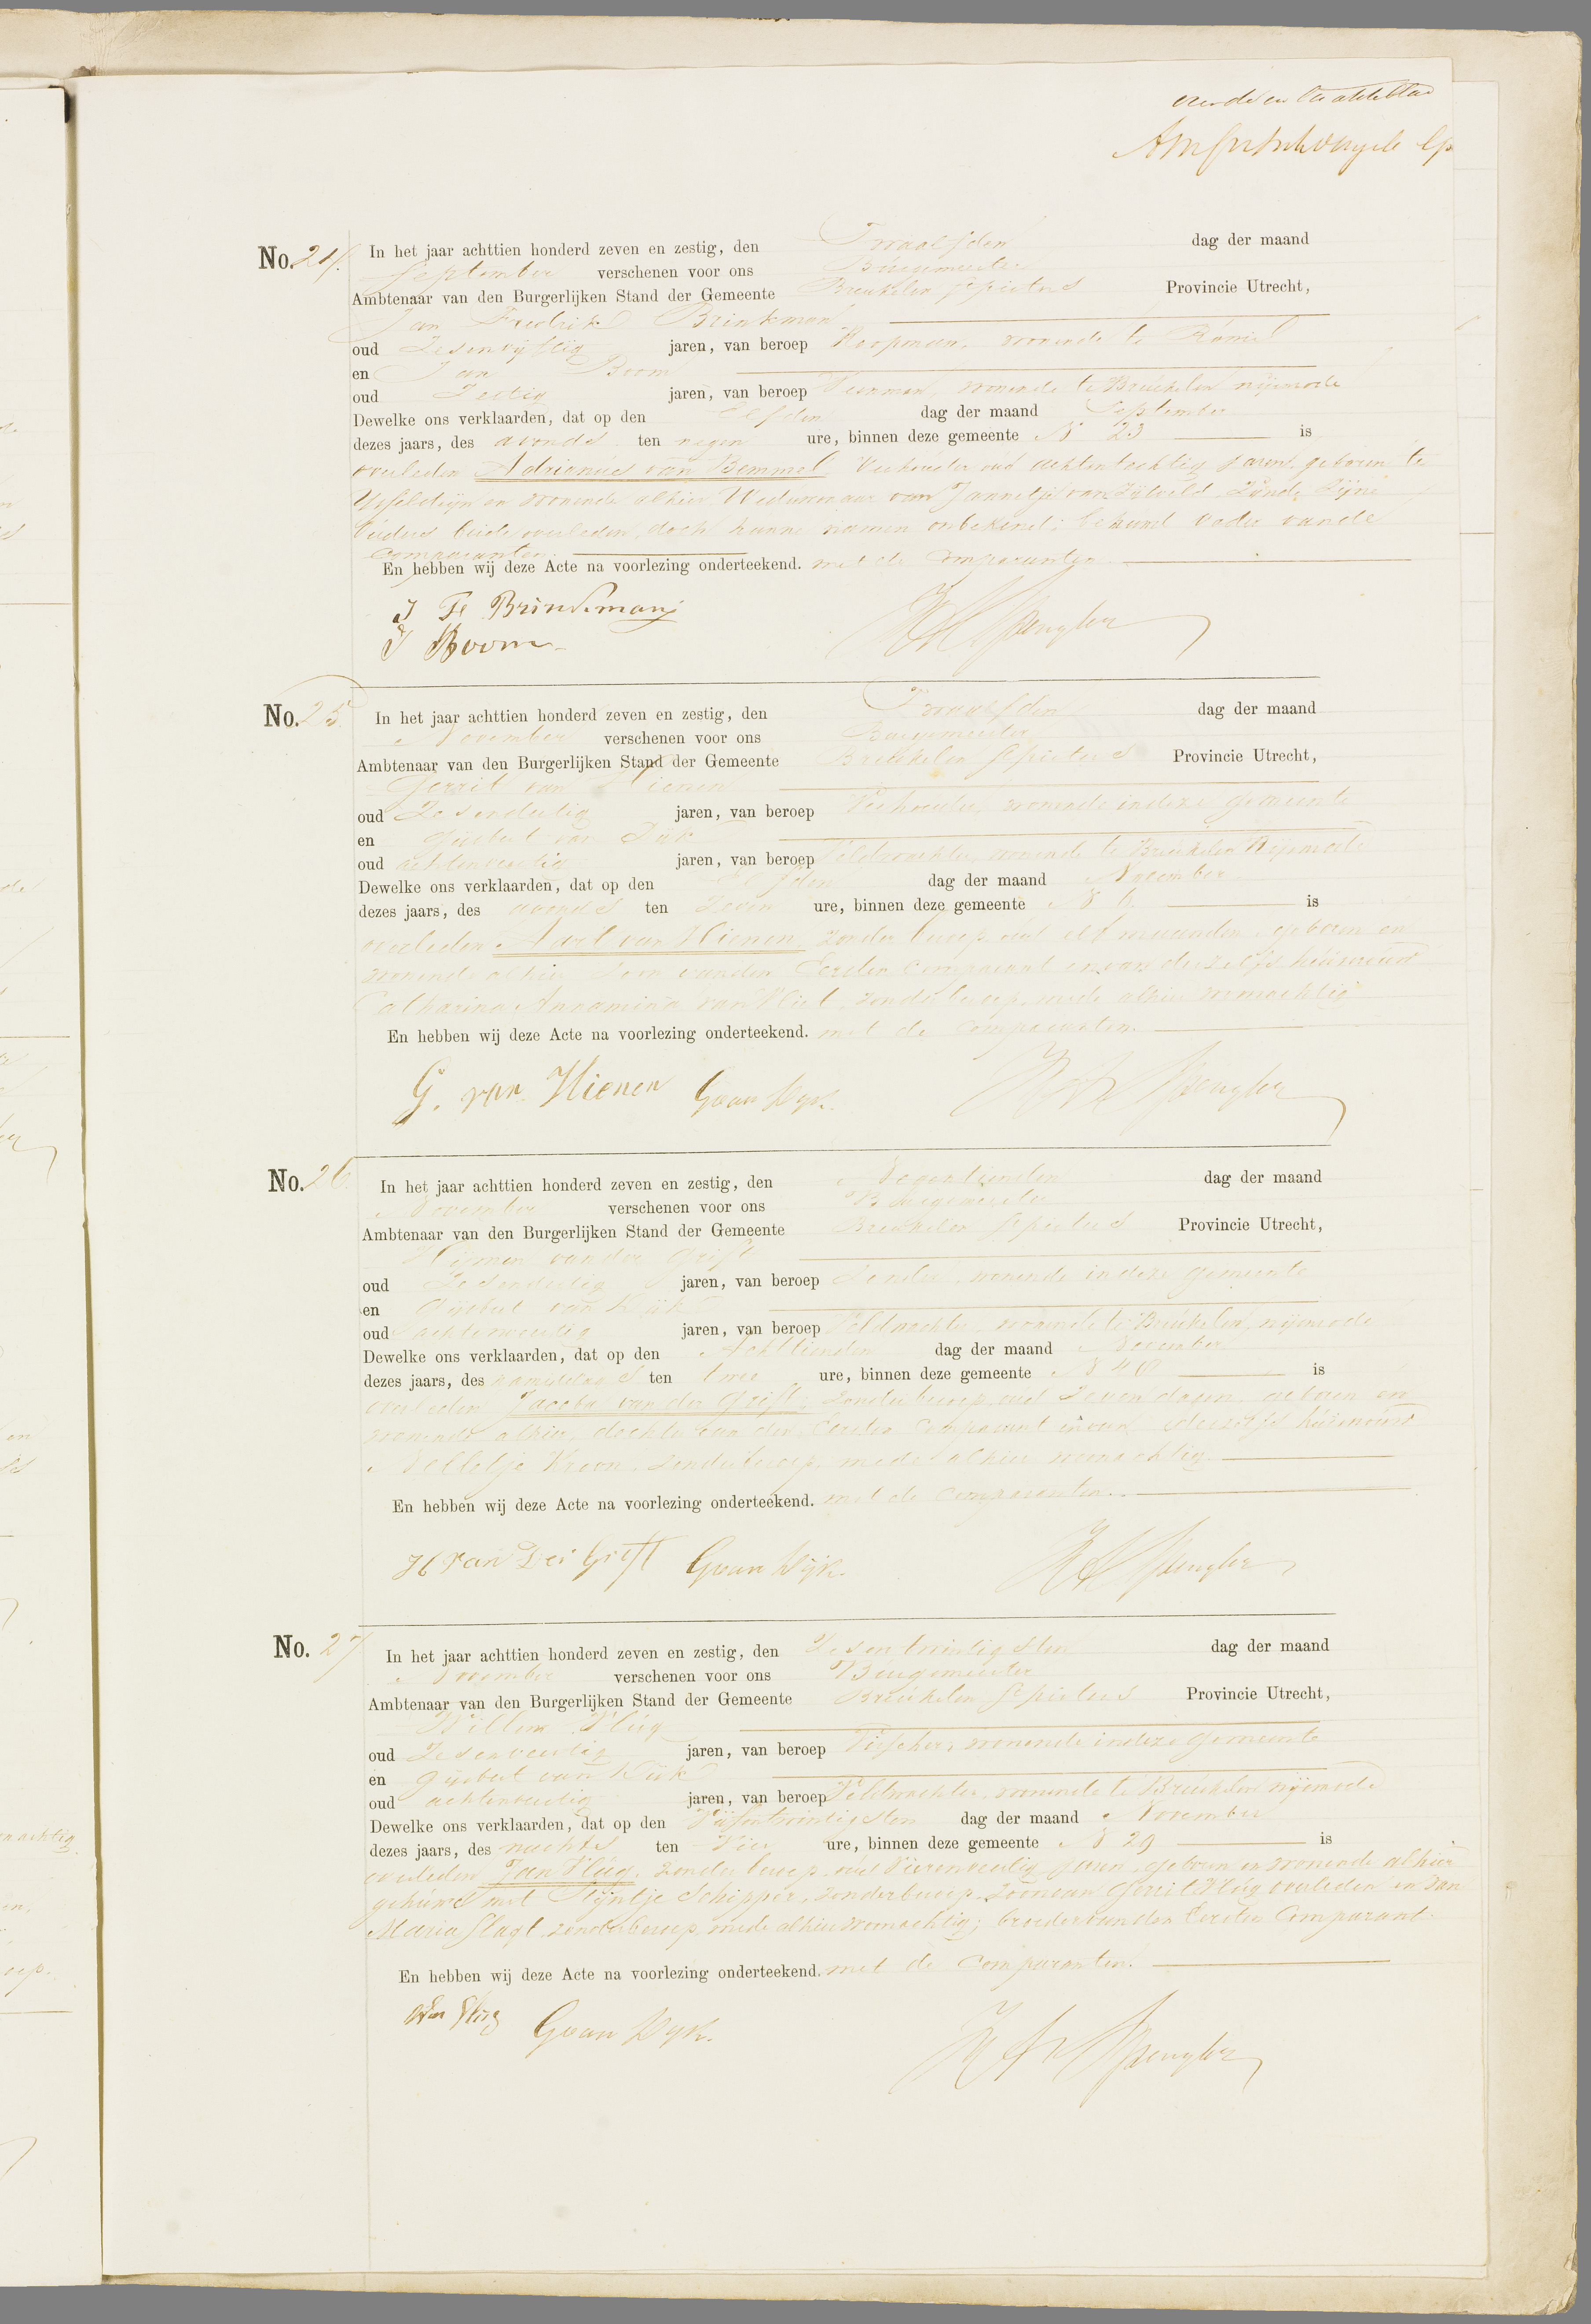 No. 24. In het jaar achttien honderd zeven en zestig, den Twaalfden dag der maand
September verschenen voor ons Burgemeester
Ambtenaar van den Burgerlijken Stand der Gemeente Breukelen St pieters Provincie Utrecht,
Jan Fredrik Brinkman
oud Zesenvijftig jaren, van beroep Koopman, wonende te
en Jan Boom
oud jaren, van beroep Veenman, wonende te Breukelen nijenrode
Dewelke ons verklaarden, dat op den Elfden dag der maand September
dezes jaars, des avonds ten negen ure, binnen deze gemeente N 23 is
overleden Adrianus van Bemmel, Veehouder oud achtentachtig jaren, geboren te
IJsselsteijn en wonende alhier, Weduwnaar van Jannetje van Zijtveld, Zijnde Zijne
Ouders beide overleden, doch hunne namen onbekend; behuwd vader van de
comparanten.
En hebben wij deze Acte na voorlezing onderteekend. met de Comparanten
J Fr Brinkman
J Boom
Spengler
No. 25 In het jaar achttien honderd zeven en zestig, den Twaalfden dag der maand
November verschenen voor ons Burgemeester
Ambtenaar van den Burgerlijken Stand der Gemeente Breukelen St pieters Provincie Utrecht,
Gerrit van Hienen
oud Zesendertig jaren, van beroep Veehouder, wonende in deze gemeente
en Gijsbert van Dijk
oud achtenveertig jaren, van beroep Veldwachter, wonende te Breukelen Nijenrode
Dewelke ons verklaarden, dat op den Elfden dag der maand November
dezes jaars, des avonds ten Zeven ure, binnen deze gemeente N 6 is
overleden Aart van Hienen, Zonder beroep, oud elf maanden, geboren en
wonende alhier, Zoon van den Eersten Comparant en van deszelfs huisvrouw
Catharina Annamina van Vliet, zonder beroep, mede alhier woonachtig
En hebben wij deze Acte na voorlezing onderteekend. met de Comparanten.
G. van Hienen G van Dyk. Spengler
No. 26 In het jaar achttien honderd zeven en zestig, den Negentienden dag der maand
November verschenen voor ons Burgemeester
Ambtenaar van den Burgerlijken Stand der Gemeente Breukelen St pieters Provincie Utrecht,
van der Grift
oud Zesendertig jaren, van beroep wonende in deze gemeente
en Gijsbert van Dijk
oud achtenveertig jaren, van beroep Veldwachter, wonende te Breukelen nijenrode
Dewelke ons verklaarden, dat op den Achttienden dag der maand November
dezes jaars, des namiddags ten twee ure, binnen deze gemeente N 40 is
overleden Jacoba van der Grift, Zonder beroep, oud Zeven dagen, geboren en
wonende alhier, dochter van den Eersten Comparant en van deszelfs huisvrouw
Kroon, Zonder beroep, mede alhier woonachtig.
En hebben wij deze Acte na voorlezing onderteekend. met de Comparanten.
H van Der Grift G van Dijk. Spengler
No. 27 In het jaar achttien honderd zeven en zestig, den Zesentwintigsten dag der maand
November verschenen voor ons Burgemeester
Ambtenaar van den Burgerlijken Stand der Gemeente Breukelen St pieters Provincie Utrecht,
Willem Vlúg
oud Zesenveertig jaren, van beroep Visscher, wonende in deze gemeente
en Gijsbert van Dijk
oud achtenveertig jaren, van beroep Veldwachter, wonende te Breukelen nijenrode
Dewelke ons verklaarden, dat op den Vijfentwintigsten dag der maand November
dezes jaars, des nachts ten Vier ure, binnen deze gemeente N 29 is
overleden Jan Vlúg, Zonder beroep, oud Vierenveertig jaren, geboren en wonende alhier
gehuwd met Stijntje Schipper, zonder beroep, Zoon van Gerrit Vlúg overleden en van
Maria Slagt, zonder beroep, mede alhier woonachtig; broeder van den Eersten Comparant.
En hebben wij deze Acte na voorlezing onderteekend. met de Comparanten.
Wm Vlug G van Dyk. Spengler